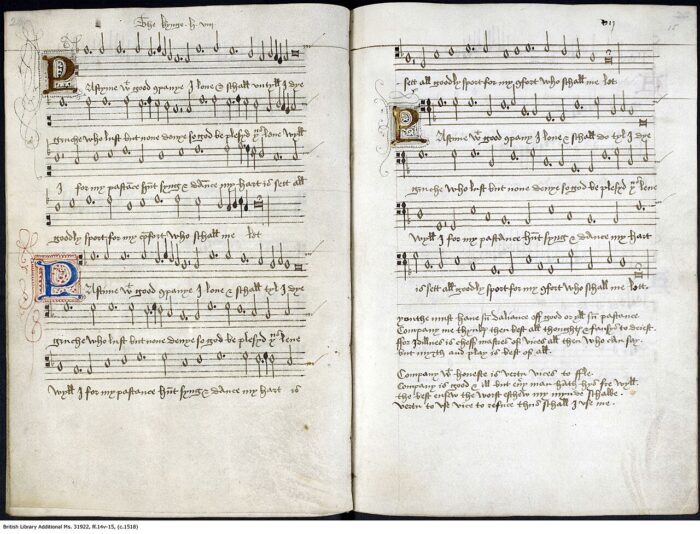 The kynge .h. viii
Pastyme wt good companye I love & schall untyll I dye
gruche who lust but none denye so god be plesyd thus leve wyll
I for my pastance hunt syng & dance my hart is sett all
goodly sport for my comfort who schall me let
Pastyme wt good companye I love & schall tyl I dye
gruche who lust but none denye so god be plesyd thus leve
wyll I for my pastance hunt syng & dance my hart is
15
sett all goodly sport for my comfort who schall me let
Pastyme wt good companye I love & schall do tyl I dye
gruche who lust but none denye so god be plesyd thus leve
wyll I for my pastance hunt syng & dance my hart
is sett all goodly sport for my comfort who schall me lett.
youthe must have sum daliance off good or yll sum pastance.
Company me thynkes then best all thoughts & fansys to deiest.
ffor Idillnes is cheff mastres of vices all then who can say.
but myrth and play is best of all.
Company wt honeste is vertu vices to ffle.
Company is good & ill but every man hath hys fre wyll.
the best ensew the worst eschew my mynde schalbe.
vertu to use vice to refuce thus schall I use me.
British Library Additional Ms. 31922, ff.14v-15, (c.1518)